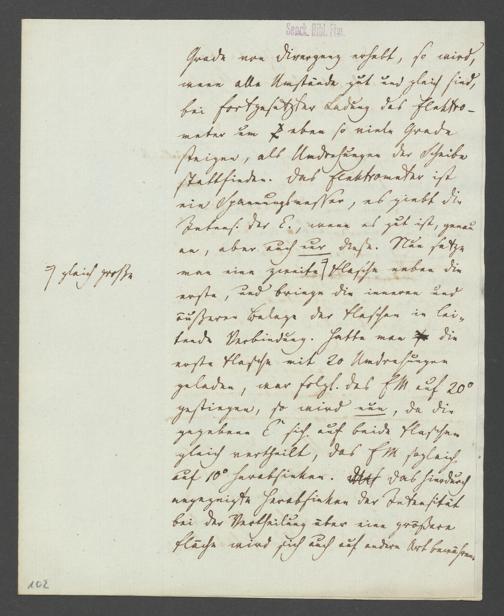 Senck. Bibl. Ffm.
Grade von Divergenz erhebt, so wird,
wenn alle Umstände gut und gleich sind,
bei fortgesetzter Ladung das Elektro-
meter um eben so viele Grade
steigen, als Umdrehungen der Scheibe
stattfinden. Das Elektrometer ist
ein Spannungsmesser, es giebt die
Intens. der E., wenn es gut ist, genau
an, aber auch nur diese. Nun setze
man eine zweite ⁊ Flasche neben die
⁊ gleich große
erste, und bringe die inneren und
äußeren Belege der Flaschen in lei-
tende Verbindung. Hatte man die
erste Flasche mit 20 Umdrehungen
geladen, war folgl. das EM auf 20°
gestiegen, so wird nun, da die
gegebene E sich auf beide Flaschen
gleich vertheilt, das EM sogleich
auf 10° herabsinken. Das hierdurch
angezeigte Herabsinken der Intensität
bei der Vertheilung über eine größere
Fläche wird sich auch auf andere Art bewähren.
102